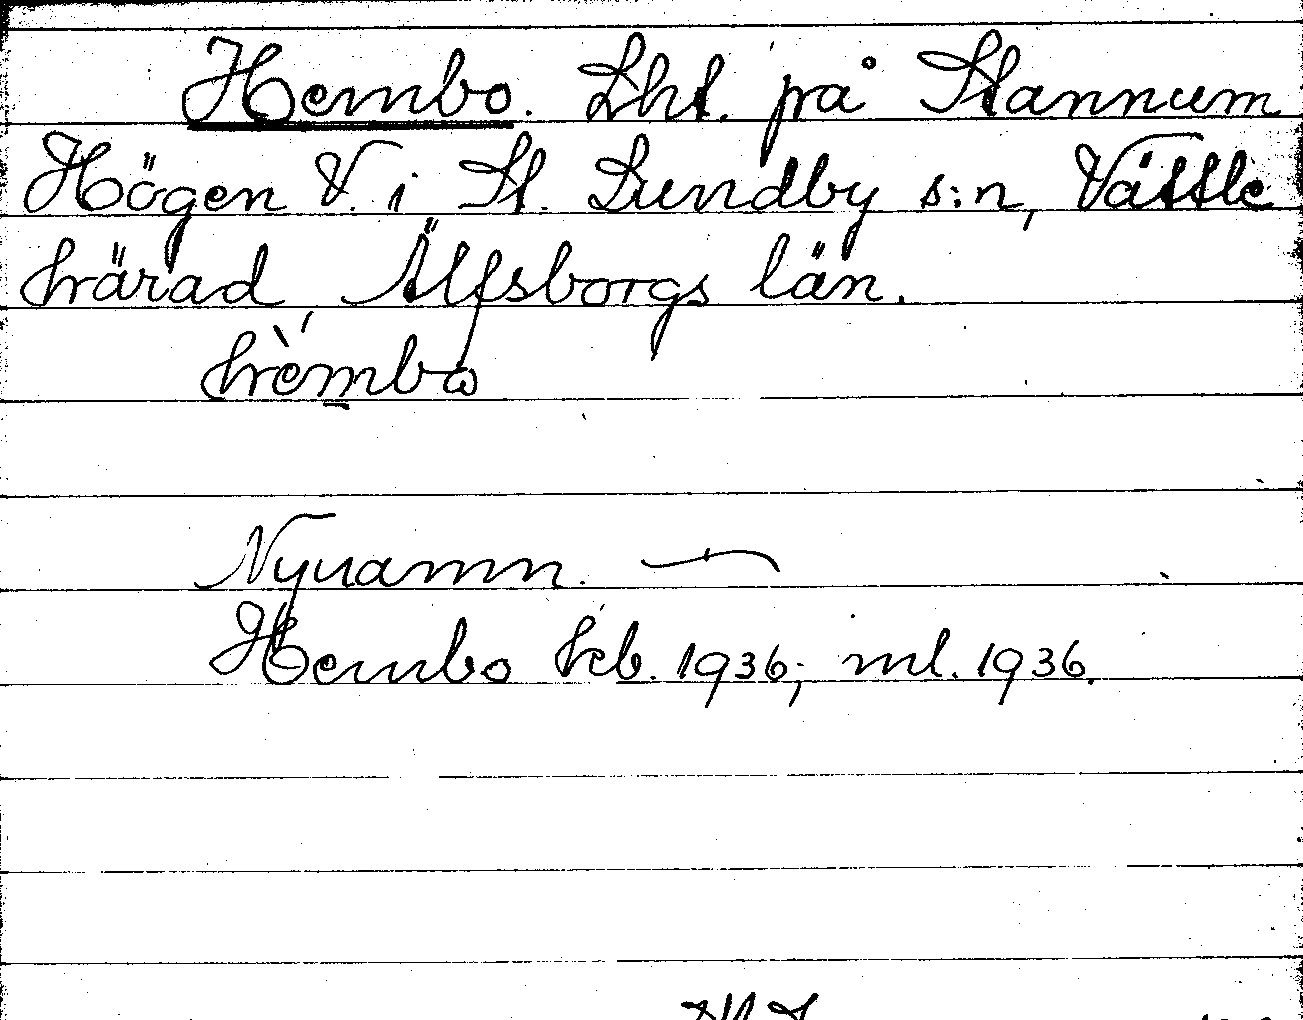 Hembo. Lht. på Stannum
Högen V. i St. Lundby s:n, Vättle
härad Älfsborgs län.
hèmbω
Nynamn.
Hembo hcb. 1936; ml. 1936.